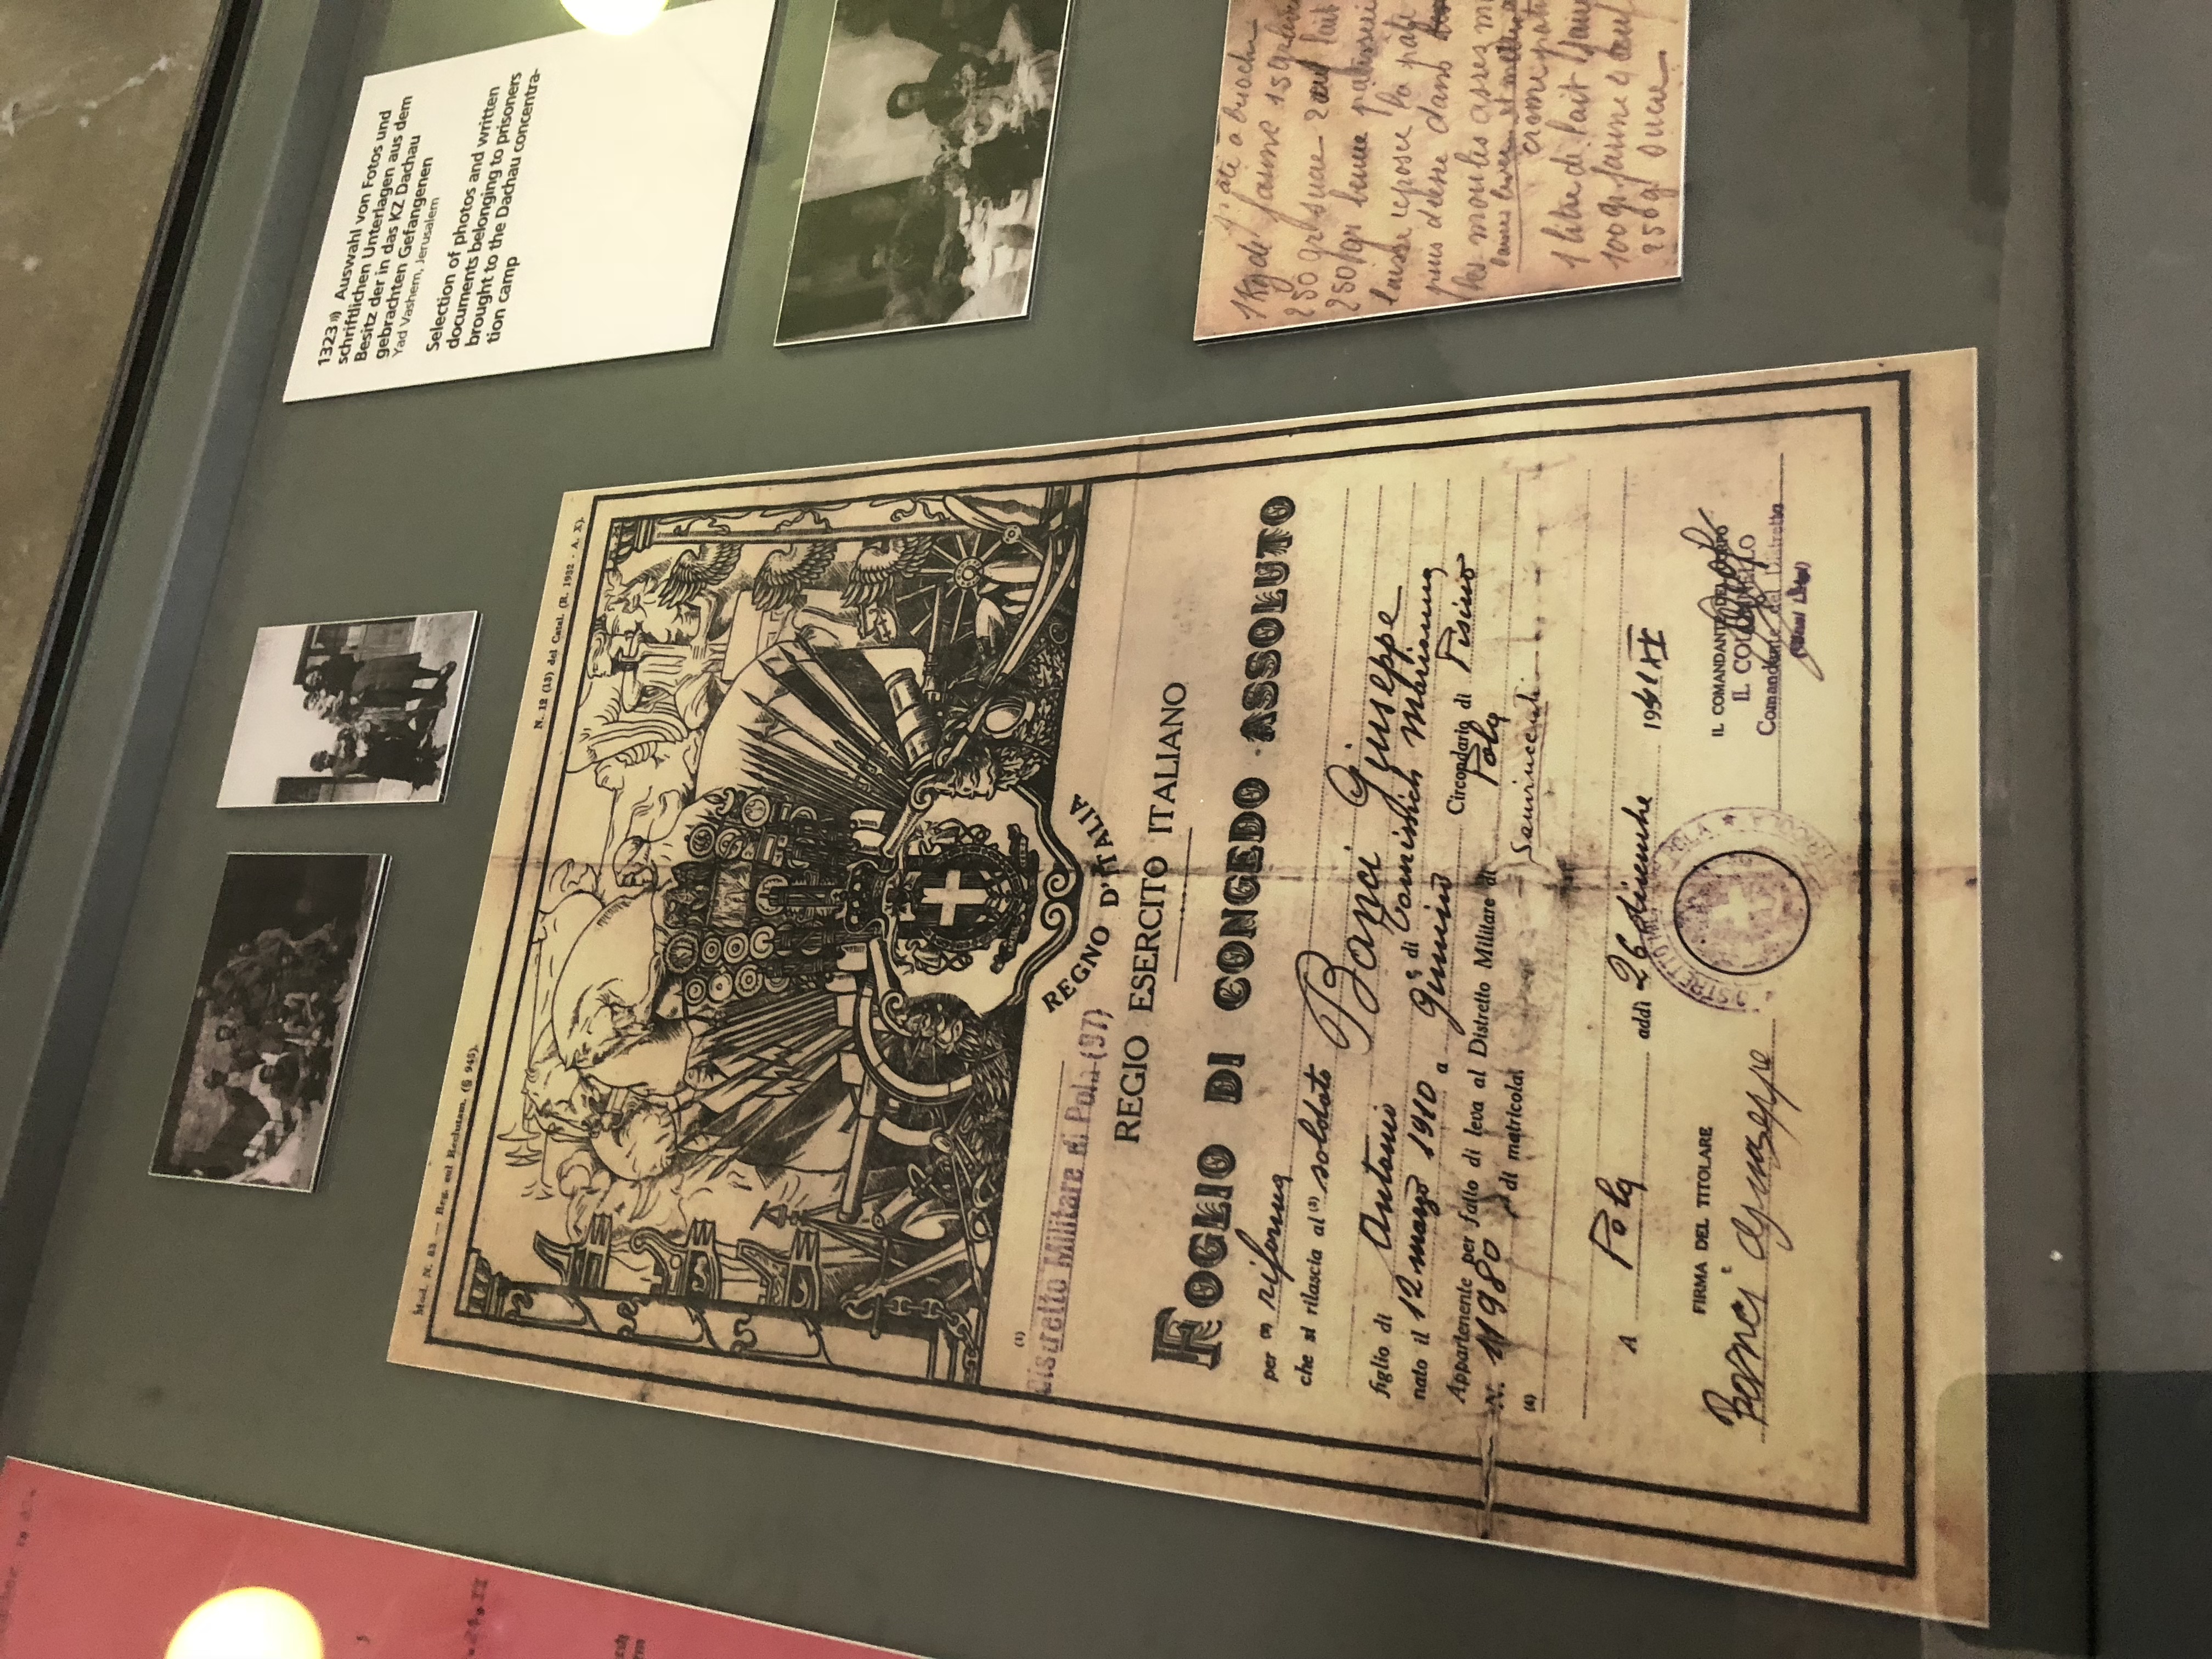 1323 ff) Auswahl von Fotos und
schriftlichen Unterlagen aus dem
Besitz der in das KZ Dachau
gebrachten Gefangenen
Yad Vashem, Jerusalem
Selection of photos and written
documents belonging to prisoners
brought to the Dachau concentra-
tion camp
Mod. N. 83. — Reg. sul Reclutam. (§ 945).
N. 12 (13) del Catal. (R. 1932 - A. X).
REGNO D'ITALIA
(1) Distretto Militare di Pola (97)
REGIO ESERCITO ITALIANO
FOGLIO DI CONGEDO ASSOLUTO
per (2) riforma
che si rilascia al (3) soldato Banci Giuseppe
figlio di Antonio e di Tomisich Marianna
nato il 12 marzo 1910 a Gimino Circondario di Pisino
Appartenente per fatto di leva al Distretto Militare di Pola
N. 11980 di matricola
(4)
A Pola addì 26 dicembre 19 XI
FIRMA DEL TITOLARE
Banci Giuseppe
IL COMANDANTE DEL CORPO
IL COLONNELLO
Comandante del Distretto
DISTRETTO MILITARE POLA
1 Kg de farine 15 gr
250 gr sucre 2 œuf lait
250 gr beurre
laisse reposer la pâte
puis dans
les moules assez
1 litre de lait
100 gr farine 4 œuf
250 gr sucre